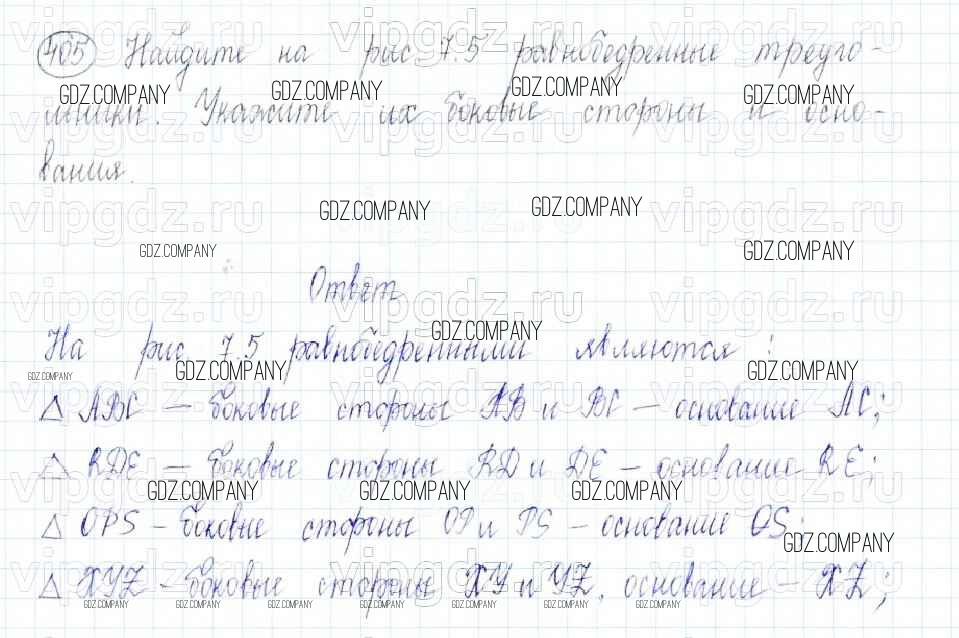 405 Найдите на рис. 7.5 равнобедренные треуго-
льники. Укажите их боковые стороны и осно-
вания.
Ответ
На рис. 7.5 равнобедренными являются:
△ ABC — боковые стороны AB и BC — основание AC;
△ RDE — боковые стороны RD и DE — основание RE;
△ OPS — боковые стороны OP и PS — основание OS;
△ XYZ - боковые стороны XY и YZ, основание — XZ;
vipgdz.ru
GDZ.COMPANY